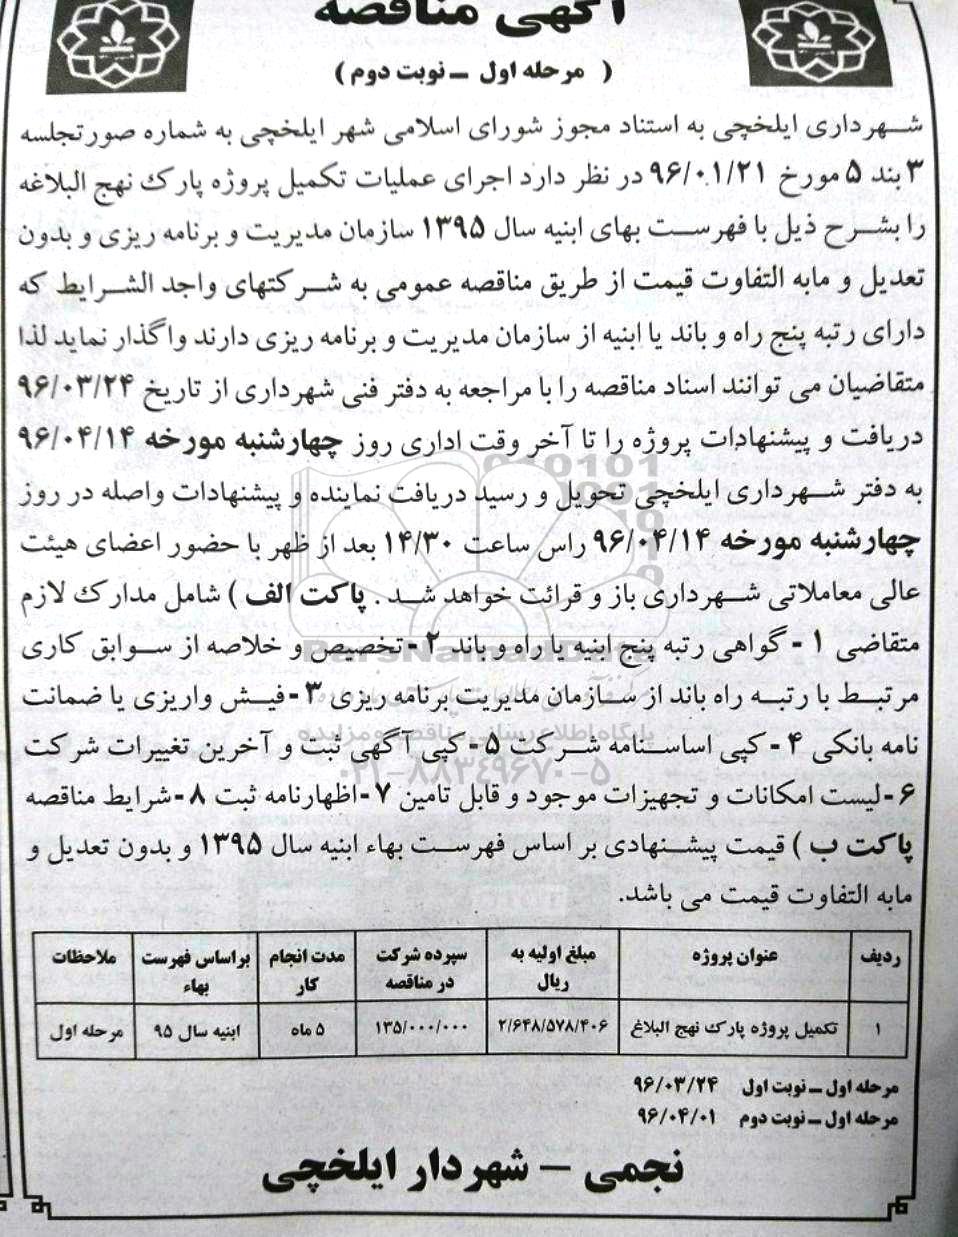 آگهی مناقصه
( مرحله اول – نوبت دوم )
شهرداری ایلخچی به استناد مجوز شورای اسلامی شهر ایلخچی به شماره صورتجلسه
۳ بند ۵ مورخ ۹۶/۰۱/۲۱ در نظر دارد اجرای عملیات تکمیل پروژه پارک نهج البلاغه
را بشرح ذیل با فهرست بهای ابنیه سال ۱۳۹۵ سازمان مدیریت و برنامه ریزی و بدون
تعدیل و مابه التفاوت قیمت از طریق مناقصه عمومی به شرکتهای واجد الشرایط که
دارای رتبه پنج راه و باند یا ابنیه از سازمان مدیریت و برنامه ریزی دارند واگذار نماید لذا
متقاضیان می توانند اسناد مناقصه را با مراجعه به دفتر فنی شهرداری از تاریخ ۹۶/۰۳/۲۴
دریافت و پیشنهادات پروژه را تا آخر وقت اداری روز چهارشنبه مورخه ۹۶/۰۴/۱۴
به دفتر شهرداری ایلخچی تحویل و رسید دریافت نماینده و پیشنهادات واصله در روز
چهارشنبه مورخه ۹۶/۰۴/۱۴ راس ساعت ۱۴/۳۰ بعد از ظهر با حضور اعضای هیئت
عالی معاملاتی شهرداری باز و قرائت خواهد شد . پاکت الف ) شامل مدارک لازم
متقاضی ۱ - گواهی رتبه پنج ابنیه یا راه و باند ۲ - تخصیص و خلاصه از سوابق کاری
مرتبط با رتبه راه باند از سازمان مدیریت برنامه ریزی ۳ - فیش واریزی یا ضمانت
نامه بانکی ۴ - کپی اساسنامه شرکت ۵ - کپی آگهی ثبت و آخرین تغییرات شرکت
۶ - لیست امکانات و تجهیزات موجود و قابل تامین ۷ - اظهارنامه ثبت ۸ - شرایط مناقصه
پاکت ب ) قیمت پیشنهادی بر اساس فهرست بهاء ابنیه سال ۱۳۹۵ و بدون تعدیل و
مابه التفاوت قیمت می باشد.
ردیف عنوان پروژه مبلغ اولیه به ریال سپرده شرکت در مناقصه مدت انجام کار براساس فهرست بهاء ملاحظات
۱ تکمیل پروژه پارک نهج البلاغ ۲/۶۴۸/۵۷۸/۴۰۶ ۱۳۵/۰۰۰/۰۰۰ ۵ ماه ابنیه سال ۹۵ مرحله اول
مرحله اول – نوبت اول ۹۶/۰۳/۲۴
مرحله اول – نوبت دوم ۹۶/۰۴/۰۱
نجمی – شهردار ایلخچی
ParsNamadData
پایگاه اطلاع رسانی مناقصه و مزایده
۰۲۱-۸۸۳۴۹۶۷۰-۵